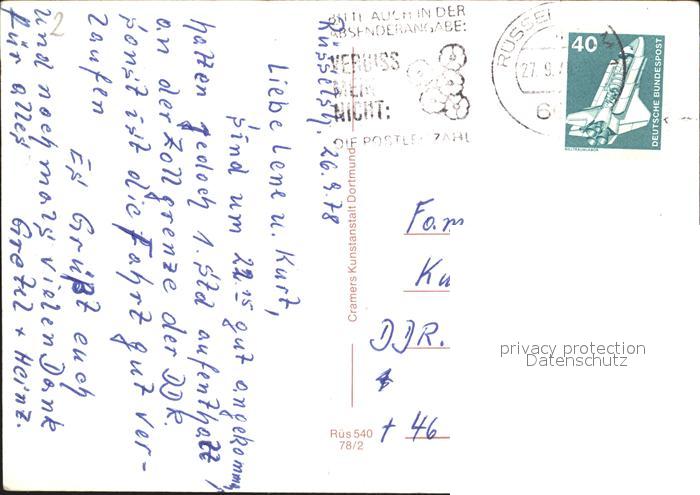 BITTE AUCH IN DER
ABSENDERANGABE:
VERGISS
MEIN
NICHT:
DIE POSTLEITZAHL
RÜSSELS
27. 9. 7
6
40
DEUTSCHE BUNDESPOST
WELTRAUMLABOR
2
Rüsselsh. 26.9.78
Liebe Lene u. Kurt,
sind um 22.15 gut angekommen,
hatten jedoch 1. Std aufenthalt
an der Zollgrenze der DDR.
sonst ist die Fahrt gut ver-
laufen
Es Grüßt euch
und nochmals vielen Dank
für alles Gretel + Heinz.
Cramers Kunstanstalt Dortmund
Rüs 540
78/2
Fam
Ku
DDR.
+ 46
privacy protection
Datenschutz